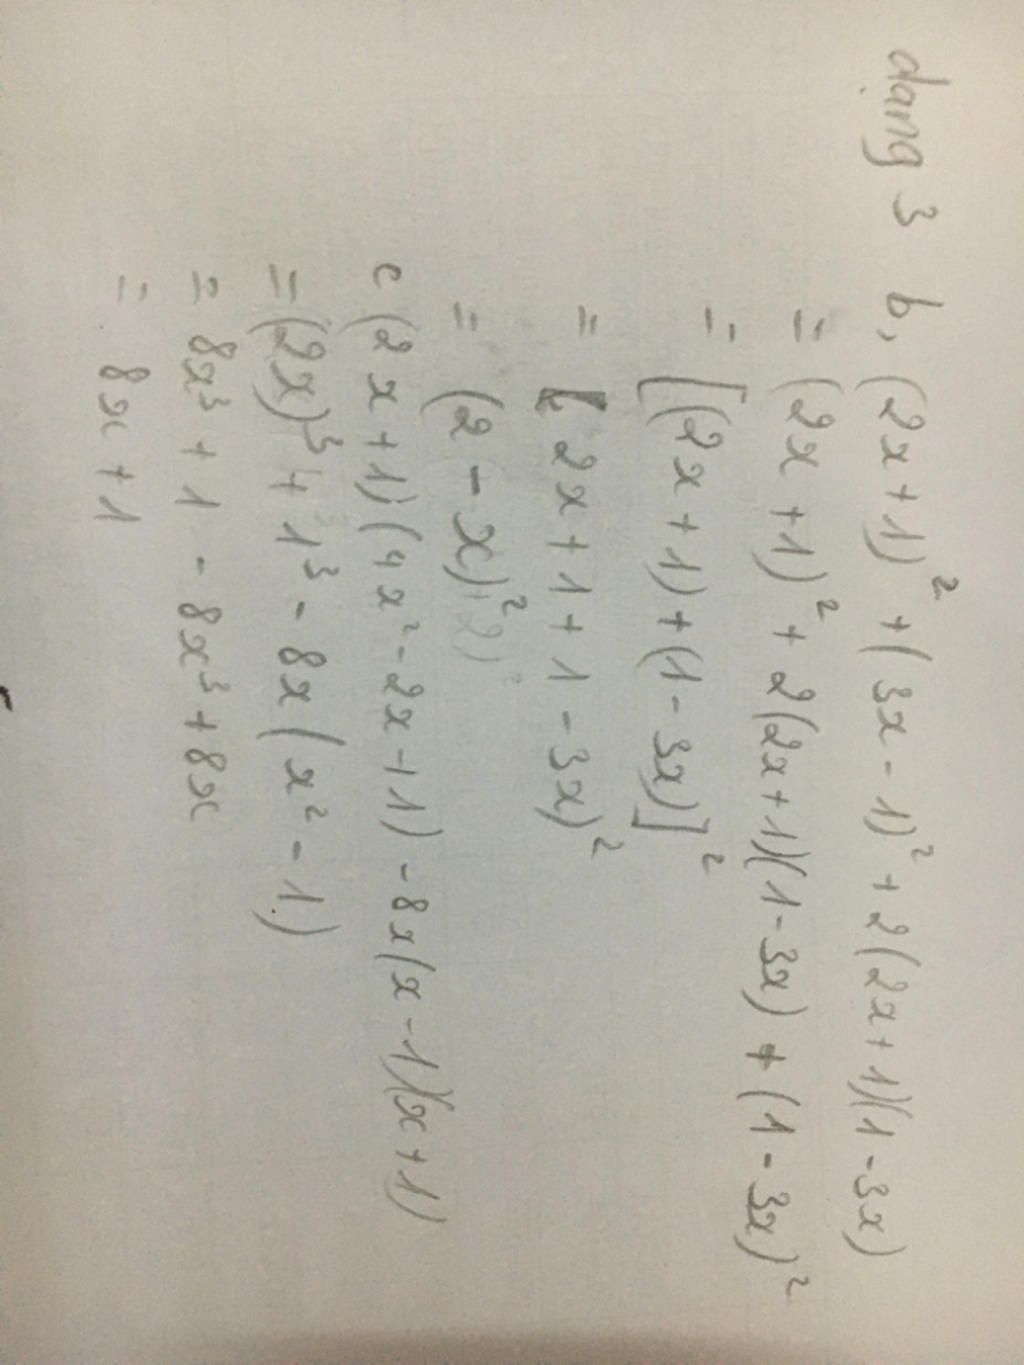 dạng 3 b, (2x+1)² + (3x-1)² + 2(2x+1)(1-3x)
= (2x+1)² + 2(2x+1)(1-3x) + (1-3x)²
= [(2x+1)+(1-3x)]²
= [2x+1+1-3x)²
= (2-x)²
c (2x+1)(4x²-2x+1) -8x(x-1)(x+1)
= (2x)³ + 1³ - 8x(x²-1)
= 8x³ + 1 - 8x³ + 8x
= 8x + 1